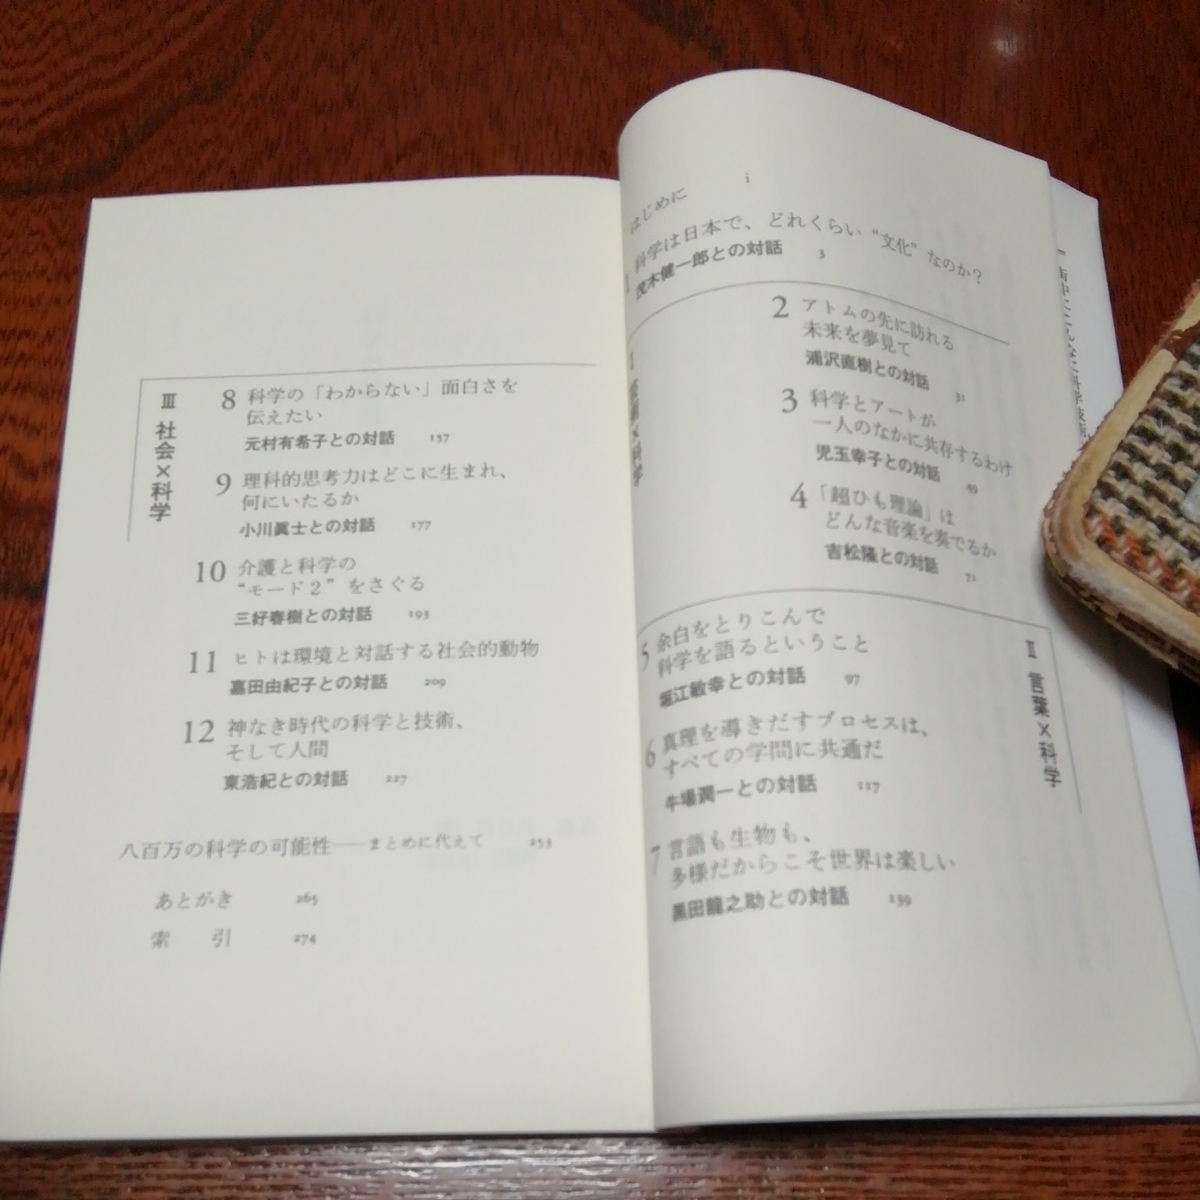 はじめに i
1 科学は日本で、どれくらい“文化”なのか?
茂木健一郎との対話 3
I 芸術×科学
2 アトムの先に訪れる
未来を夢見て
浦沢直樹との対話 31
3 科学とアートが
一人のなかに共存するわけ
児玉幸子との対話 49
4 「超ひも理論」は
どんな音楽を奏でるか
吉松隆との対話 71
II 言葉×科学
5 余白をとりこんで
科学を語るということ
堀江敏幸との対話 97
6 真理を導きだすプロセスは、
すべての学問に共通だ
牛場潤一との対話 117
7 言語も生物も、
多様だからこそ世界は楽しい
黒田龍之助との対話 139
III 社会×科学
8 科学の「わからない」面白さを
伝えたい
元村有希子との対話 157
9 理科的思考力はどこに生まれ、
何にいたるか
小川眞士との対話 177
10 介護と科学の
“モード2”をさぐる
三好春樹との対話 193
11 ヒトは環境と対話する社会的動物
嘉田由紀子との対話 209
12 神なき時代の科学と技術、
そして人間
東浩紀との対話 227
八百万の科学の可能性――まとめに代えて 253
あとがき 265
索 引 274